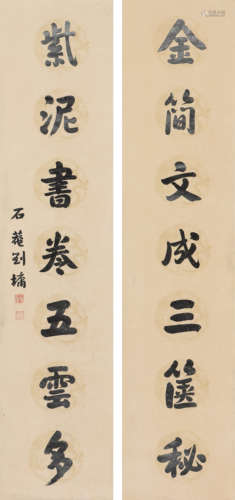 金简文成三箧秘
紫泥書卷五雲多
石菴劉墉